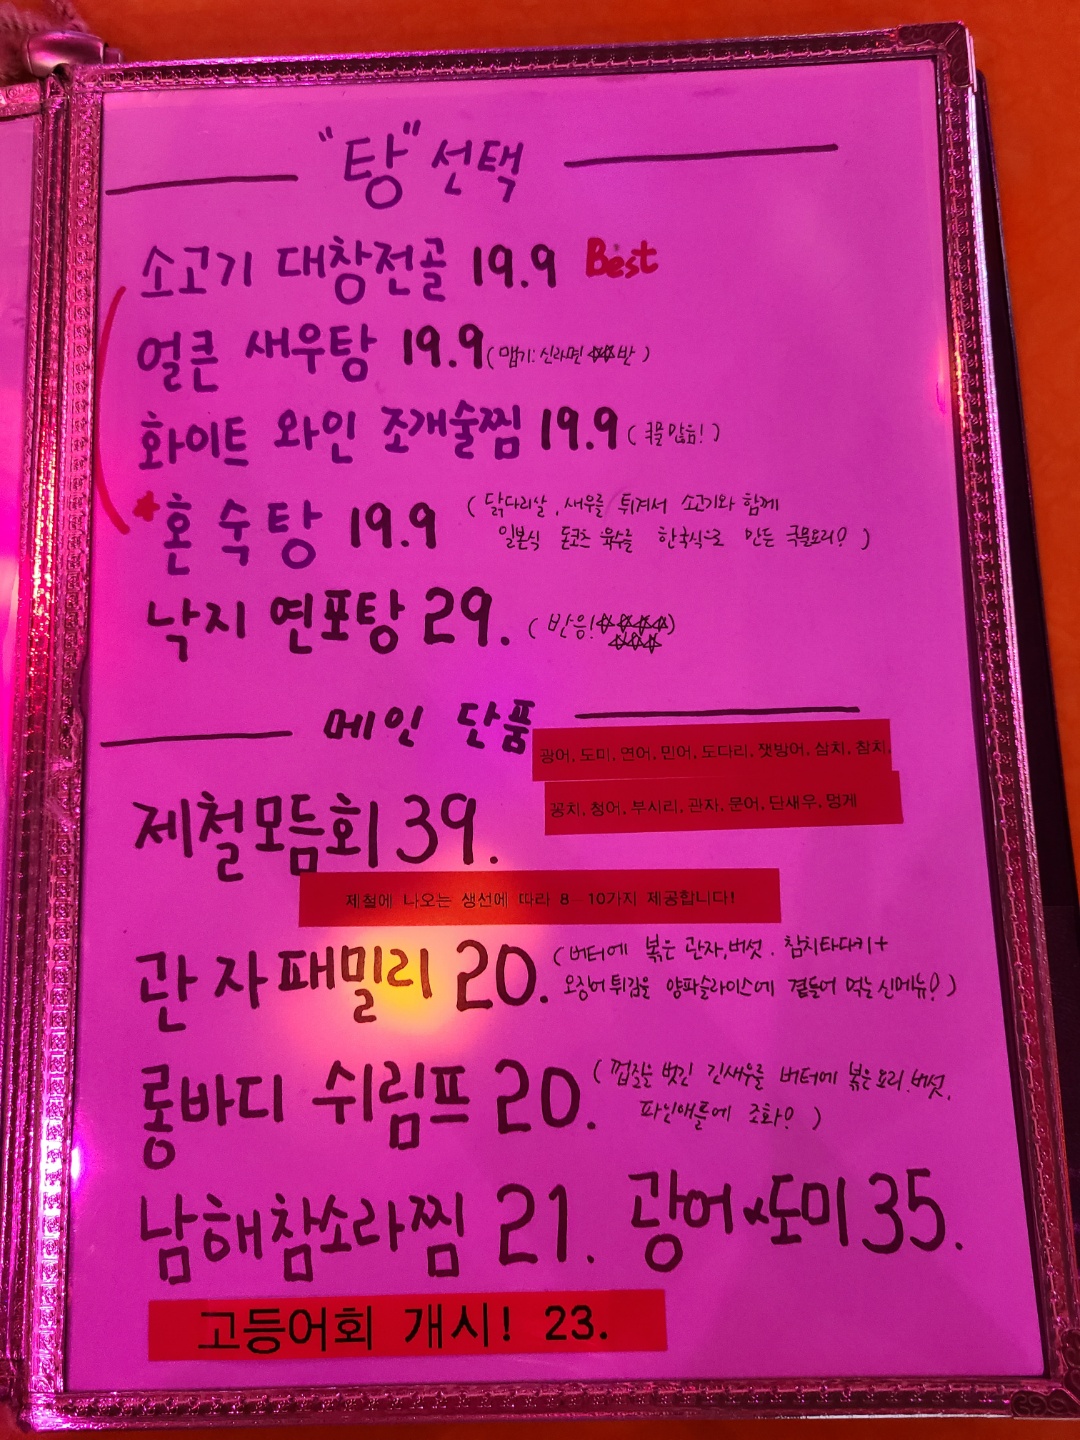 "탕" 선택
소고기 대창전골 19.9 Best
얼큰 새우탕 19.9 (맵기: 신라면 ☆☆반)
화이트 와인 조개술찜 19.9 (국물 많음!)
*혼숙탕 19.9 (닭다리살, 새우를 튀겨서 소고기와 함께
일본식 돈코츠 육수를 한국식으로 만든 국물요리?)
낙지 연포탕 29. (반응!☆☆☆☆
☆☆☆)
메인 단품
광어, 도미, 연어, 민어, 도다리, 잿방어, 삼치, 참치,
꽁치, 청어, 부시리, 관자, 문어, 단새우, 멍게
제철모듬회 39.
제철에 나오는 생선에 따라 8-10가지 제공합니다!
관자패밀리 20. (버터에 볶은 관자,버섯. 참치타다키+
오징어 튀김을 양파슬라이스에 곁들어 먹는 신메뉴?)
롱바디 쉬림프 20. (껍질을 벗긴 긴새우를 버터에 볶은 요리.버섯,
파인애플에 조화?)
남해참소라찜 21. 광어x도미 35.
고등어회 개시! 23.